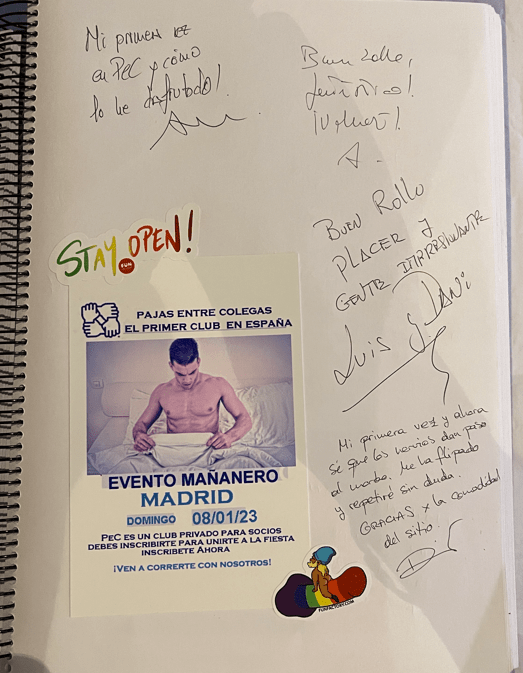 Mi primera vez
en PeC y cómo
lo he disfrutado!
Buen rollo,
¡Volveré!
A.
BUEN ROLLO
PLACER Y
GENTE IMPRESIONANTE
Luis y Dani
STAY OPEN!
FUN
PAJAS ENTRE COLEGAS
EL PRIMER CLUB EN ESPAÑA
EVENTO MAÑANERO
MADRID
DOMINGO 08/01/23
PEC ES UN CLUB PRIVADO PARA SOCIOS
DEBES INSCRIBIRTE PARA UNIRTE A LA FIESTA
INSCRIBETE AHORA
¡VEN A CORRERTE CON NOSOTROS!
FUNFACTORY.COM
Mi primera vez y ahora
sé que los nervios dan paso
al morbo. Me ha flipado
y repetiré sin duda.
GRACIAS x la comodidad
del sitio.